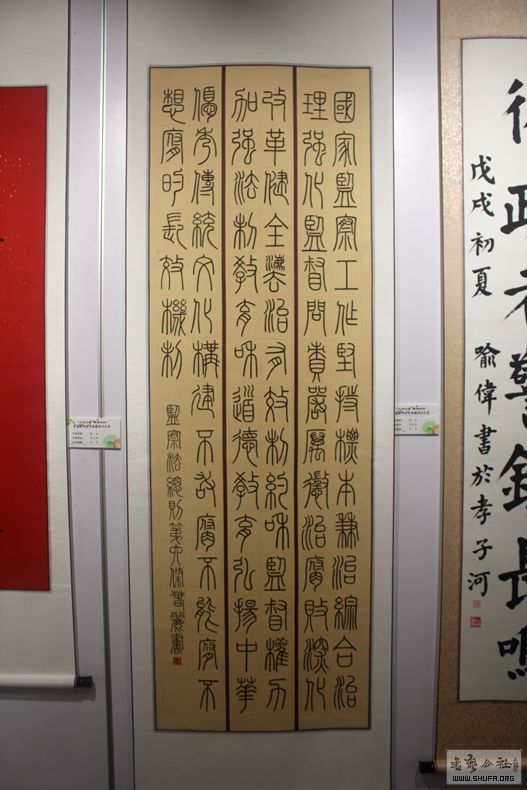 政者警鐘長鳴
戊戌初夏 喻偉書於孝子河
國家監察工作堅持標本兼治綜合治
理強化監督問責嚴厲懲治腐敗深化
改革健全灋治有效制約和監督權力
加強法制教育和道德教育弘揚中華
優秀傳統文化構建不敢腐不能腐不
想腐的長效機制
監察法總則第六條 麗書
書藝公社
WWW.SHUFA.ORG